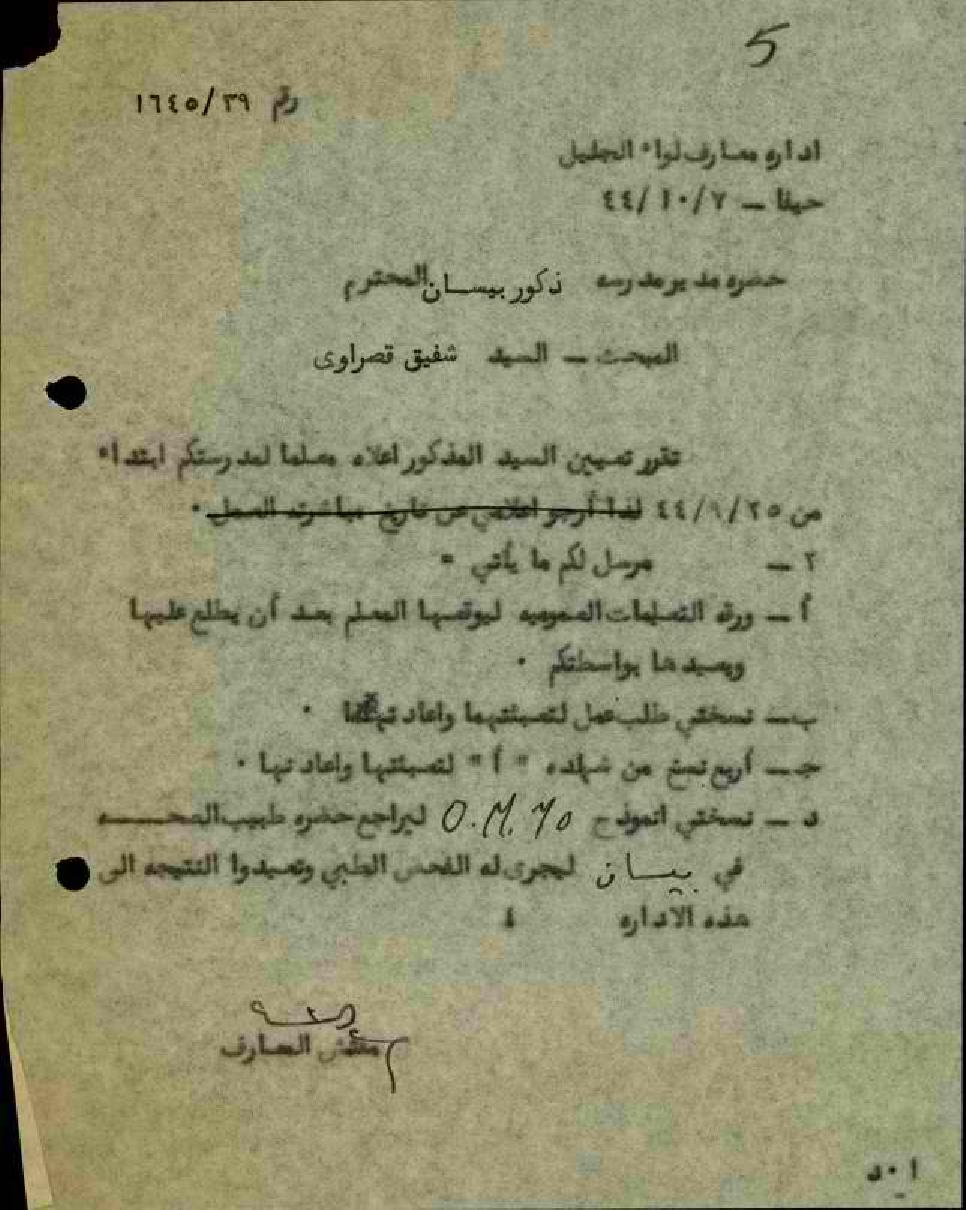 5
رقم ١٦٤٥/٣٩
اداره معارف لواء الجليل
حيفا – ٤٤/١٠/٧
حضره مدير مدرسه ذكور بيسان المحترم
المبحث – السيد شفيق قصراوى
تقرر تعيين السيد المذكور اعلاه معلما لمدرستكم ابتداء
من ٤٤/٩/٢٥ لذا أرجو اعلامي عن تاريخ مباشرته العمل ٠
٢ – مرسل لكم ما يأتي =
أ – ورقه التعليمات العموميه ليوقعها المعلم بعد أن يطلع عليها
ويعيدها بواسطتكم ٠
ب – نسختي طلب عمل لتعبئتهما واعادتهما ٠
جـ – أربع نسخ من شهاده " أ " لتعبئتها واعادتها ٠
د – نسختي انموذج O.M. 70 ليراجع حضره طبيب الصحـــه
في بيسان ليجرى له الفحص الطبي وتعيدوا النتيجه الى
هذه الاداره
مفتش المعارف
ا ٠ د